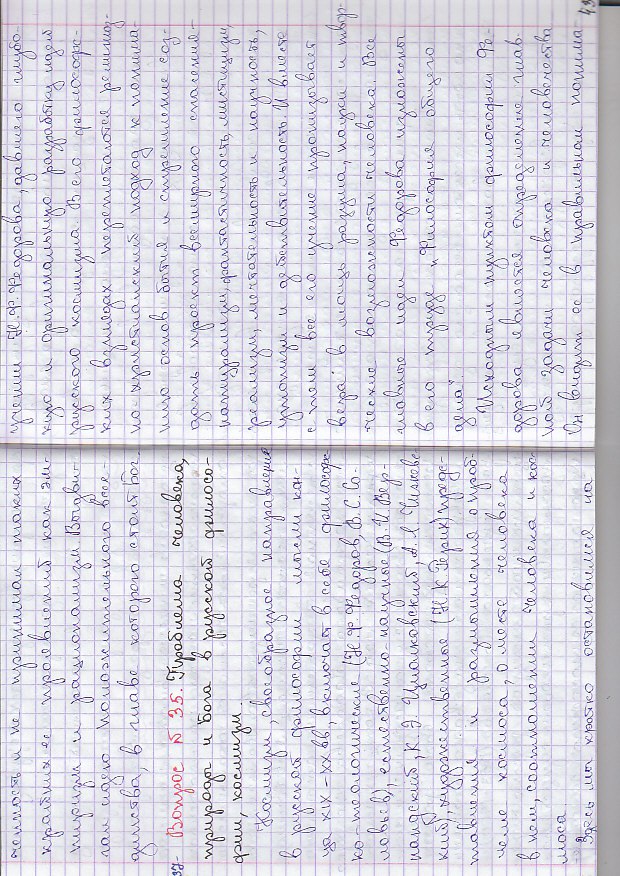 ценность и не принимал таких
крайних ее проявлений как эм-
пиризм и рационализм. Выдви-
гал идею положительного всее-
динства, в главе которого стоит Бог.
37- Вопрос №35. Проблема человека,
природы и Бога в русской филосо-
фии, космизм.
Космизм, своеобразное направление
в русской философии мысли кон-
ца XIX-XX вв, включает в себя философ
ко-теологические (Н.Ф.Федоров, В.С.Со-
ловьев), естественно научные (В.И.Вер-
надский, К.Э.Циолковский, А.Л.Чижевс
кий), художественные (Н.К.Рерих) предс-
тавления и размышления о проб-
леме космоса, о месте человека
в нем, соотношении человека и кос-
моса.
Здесь мы кратко остановимся на
учении Н.Ф.Федорова, давшего глубо-
кую и оригинальную разработку идей
русского космизма. В его философс-
ких взглядах переплетаются религиоз-
но-христианский подход к понима-
нию основ бытия и стремление соз-
дать проект всемирного спасения-
натурализм, фантастичность, мистицизм,
реализм, мечтательность и научность,
утопизм и действительность. И вместе
с тем все его учение пронизывает
вера в мощь разума, науки и твор-
ческие возможности человека. Все
главные идеи Федорова изложены
в его труде „Философия общего
дела"
Исходным пунктом философии Фе-
дорова является определение глав-
ной задачи человека и человечества
Он видит ее в правильном понима
43